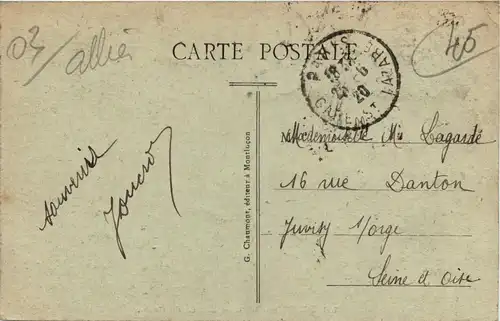 03/allier
CARTE POSTALE
45
PARIS
GARE ST LAZARE
20
souvenirs
G. Chaumont, éditeur à Montluçon
Mademoiselle M. Lagarde
16 rue Danton
Juvisy s/orge
Seine et Oise